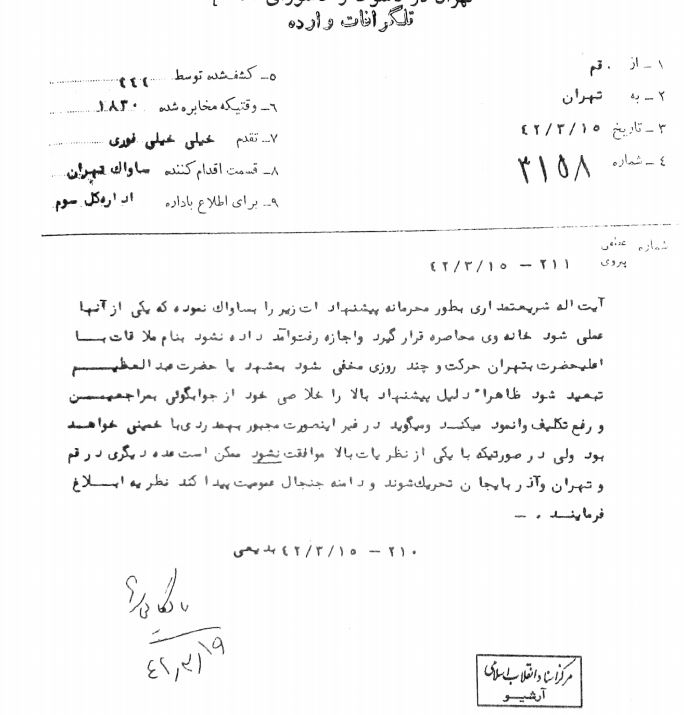 تلگرافات وارده
۱ـ از . قم
۲ـ به تهران
۳ـ تاریخ ۴۲/۳/۱۵
۴ـ شماره ۳۱۵۸
۵ـ کشف‌شده توسط ۴۴۴
۶ـ وقتیکه مخابره شده ۱۸۳۰
۷ـ تقدم خیلی خیلی فوری
۸ـ قسمت اقدام کننده ساواک تهران
۹ـ برای اطلاع باداره اداره‌کل سوم
شماره عطفی
پیروی ۲۱۱ – ۴۲/۳/۱۵
آیت اله شریعتمداری بطور محرمانه پیشنهاد ات زیر را بساواک نموده که یکی از آنها
عملی شود خانه وی محاصره قرار گیرد واجازه رفت‌وآمد داده نشود بنام ملاقات بــا
اعلیحضرت بتهران حرکت و چند روزی مخفی شود بمشهد یا حضرت عبد العظیــم
تبعید شود ظاهرا" دلیل پیشنهاد بالا را خلاصی خود از جوابگوئی بمراجعیــن
و رفع تکلیف وانمود میکنــد ومیگوید در غیر اینصورت مجبور بهمدردی با خمینی خواهــد
بود ولی در صورتیکه با یکی از نظریات بالا موافقت نشود ممکن است عده دیگری در قم
و تهران وآذربایجان تحریک‌شوند و دامنه جنجال عمومیت پیدا کند نظریه ابــلاغ
فرماینــد . ــ
۲۱۰ – ۴۲/۳/۱۵ بدیعی
۴۲/۳/۱۹
مرکز اسناد انقلاب اسلامی
آرشیــو